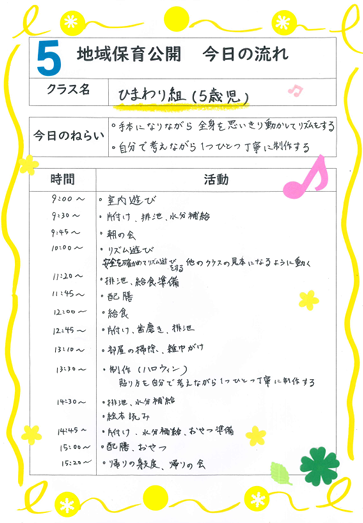 5 地域保育公開 今日の流れ
クラス名 ひまわり組(5歳児)
今日のねらい
・手本になりながら 全身を思いきり動かしてリズムをする
・自分で考えながら1つひとつ丁寧に制作する
時間 活動
9:00〜 ・室内遊び
9:30〜 ・片付け、排泄、水分補給
9:45〜 ・朝の会
10:00〜 ・リズム遊び
リズム遊びをする 他のクラスの見本になるように動く
11:20〜 ・排泄、給食準備
11:45〜 ・配膳
12:00〜 ・給食
12:45〜 ・片付け、歯磨き、排泄
13:10〜 ・部屋の掃除、雑巾がけ
13:30〜 ・制作(ハロウィン)
貼り方を自分で考えながら1つひとつ丁寧に制作する
14:30〜 ・排泄、水分補給
・絵本読み
14:45〜 ・片付け、水分補給、おやつ準備
15:00〜 ・配膳、おやつ
15:20〜 ・帰りの支度、帰りの会